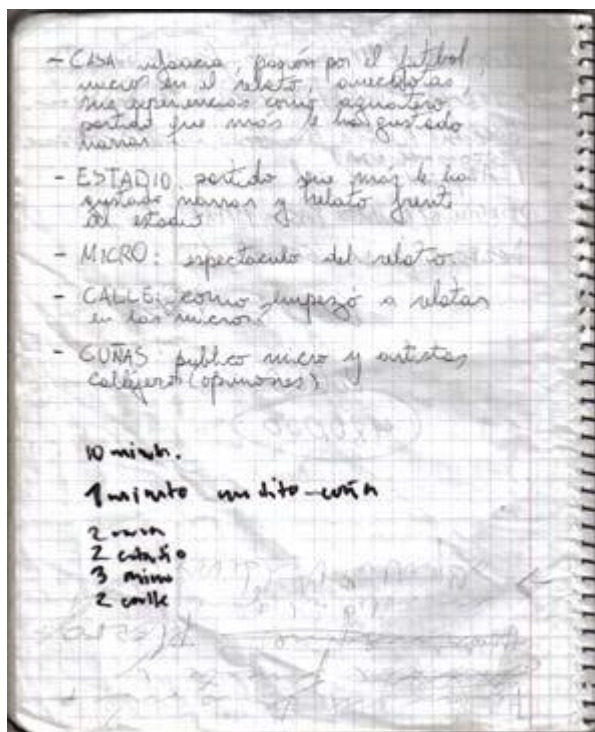 - CASA infancia, pasión por el futbol,
inicio en el relato, anecdotas,
sus experiencias como aguatero
partido que más le ha gustado
narrar.
- ESTADIO partido que más le ha
gustado narrar y relato frente
al estadio
- MICRO: espectaculo del relator.
- CALLE: como empezó a relatar
en las micros.
- CUÑAS publico micro y artistas
callejeros (opiniones)
10 minutos.
1 minuto cuña
2 casa
2 estadio
3 micro
2 calle